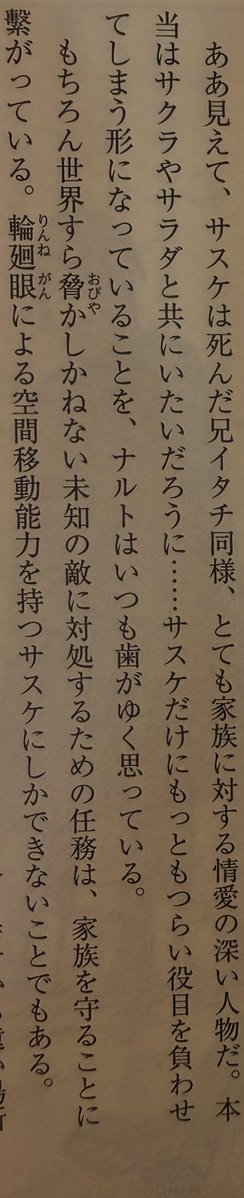 ああ見えて、サスケは死んだ兄イタチ同様、とても家族に対する情愛の深い人物だ。本
当はサクラやサラダと共にいたいだろうに……サスケだけにもっともつらい役目を負わせ
てしまう形になっていることを、ナルトはいつも歯がゆく思っている。
もちろん世界すら脅かしかねない未知の敵に対処するための任務は、家族を守ることに
繫がっている。輪廻眼による空間移動能力を持つサスケにしかできないことでもある。